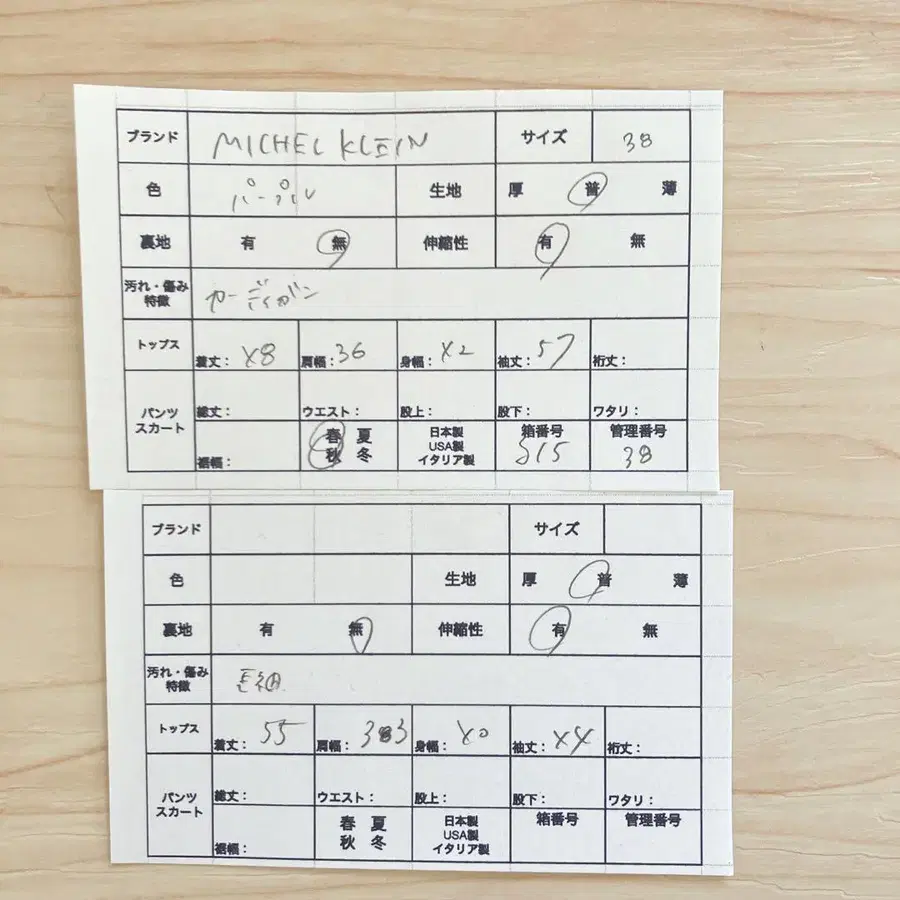 ブランド MICHEL KLEIN サイズ 38
色 パープル 生地 厚 普 薄
裏地 有 無 伸縮性 有 無
汚れ・傷み
特徴 カーディガン
トップス 着丈: 48 肩幅: 36 身幅: 42 袖丈: 57 裄丈:
パンツ
スカート
総丈: ウエスト: 股上: 股下: ワタリ:
裾幅:
春 夏
秋 冬
日本製
USA製
イタリア製
箱番号
管理番号
38
ブランド サイズ
色 生地 厚 普 薄
裏地 有 無 伸縮性 有 無
汚れ・傷み
特徴 長袖
トップス 着丈: 55 肩幅: 身幅: 40 袖丈: 44 裄丈:
パンツ
スカート
総丈: ウエスト: 股上: 股下: ワタリ:
裾幅:
春 夏
秋 冬
日本製
USA製
イタリア製
箱番号
管理番号